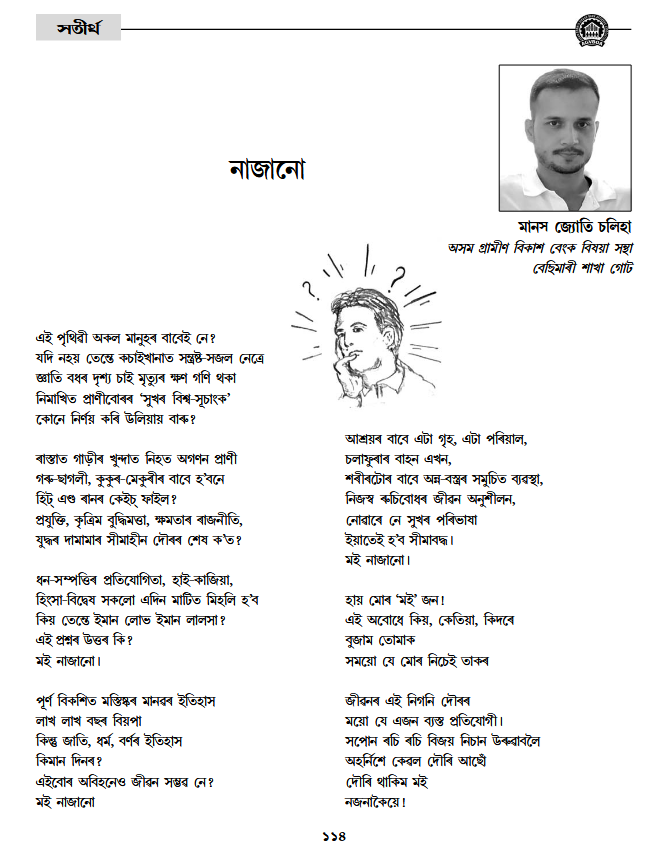 সতীৰ্থ
নাজানো
মানস জ্যোতি চলিহা
অসম গ্ৰামীণ বিকাশ বেংক বিষয়া সন্থা
বেছিমাৰী শাখা গোট
এই পৃথিৱী অকল মানুহৰ বাবেই নে?
যদি নহয় তেন্তে কচাইখানাত সন্ত্ৰষ্ট-সজল নেত্ৰে
জ্ঞাতি বধৰ দৃশ্য চাই মৃত্যুৰ ক্ষণ গণি থকা
নিমাখিত প্ৰাণীবোৰৰ ‘সুখৰ বিশ্ব-সূচাংক’
কোনে নিৰ্ণয় কৰি উলিয়ায় বাৰু?
ৰাস্তাত গাড়ীৰ খুন্দাত নিহত অগণন প্ৰাণী
গৰু-ছাগলী, কুকুৰ-মেকুৰীৰ বাবে হ’বনে
হিট্ এণ্ড ৰানৰ কেইচ্ ফাইল?
প্ৰযুক্তি, কৃত্ৰিম বুদ্ধিমত্তা, ক্ষমতাৰ ৰাজনীতি,
যুদ্ধৰ দামামাৰ সীমাহীন দৌৰৰ শেষ ক’ত?
ধন-সম্পত্তিৰ প্ৰতিযোগিতা, হাই-কাজিয়া,
হিংসা-বিদ্বেষ সকলো এদিন মাটিত মিহলি হ’ব
কিয় তেন্তে ইমান লোভ ইমান লালসা?
এই প্ৰশ্নৰ উত্তৰ কি?
মই নাজানো।
পূৰ্ণ বিকশিত মস্তিষ্কৰ মানৱৰ ইতিহাস
লাখ লাখ বছৰ বিয়পা
কিন্তু জাতি, ধৰ্ম, বৰ্ণৰ ইতিহাস
কিমান দিনৰ?
এইবোৰ অবিহনেও জীৱন সম্ভৱ নে?
মই নাজানো
আশ্ৰয়ৰ বাবে এটা গৃহ, এটা পৰিয়াল,
চলাফুৰাৰ বাহন এখন,
শৰীৰটোৰ বাবে অন্ন-বস্ত্ৰৰ সমুচিত ব্যৱস্থা,
নিজস্ব ৰুচিবোধৰ জীৱন অনুশীলন,
নোৱাৰে নে সুখৰ পৰিভাষা
ইয়াতেই হ’ব সীমাবদ্ধ।
মই নাজানো।
হায় মোৰ ‘মই’ জন!
এই অবোধে কিয়, কেতিয়া, কিদৰে
বুজাম তোমাক
সময়ো যে মোৰ নিচেই তাকৰ
জীৱনৰ এই নিগনি দৌৰৰ
ময়ো যে এজন ব্যস্ত প্ৰতিযোগী।
সপোন ৰচি ৰচি বিজয় নিচান উৰুৱাবলৈ
অহৰ্নিশে কেৱল দৌৰি আছোঁ
দৌৰি থাকিম মই
নজনাকৈয়ে!
১১৪